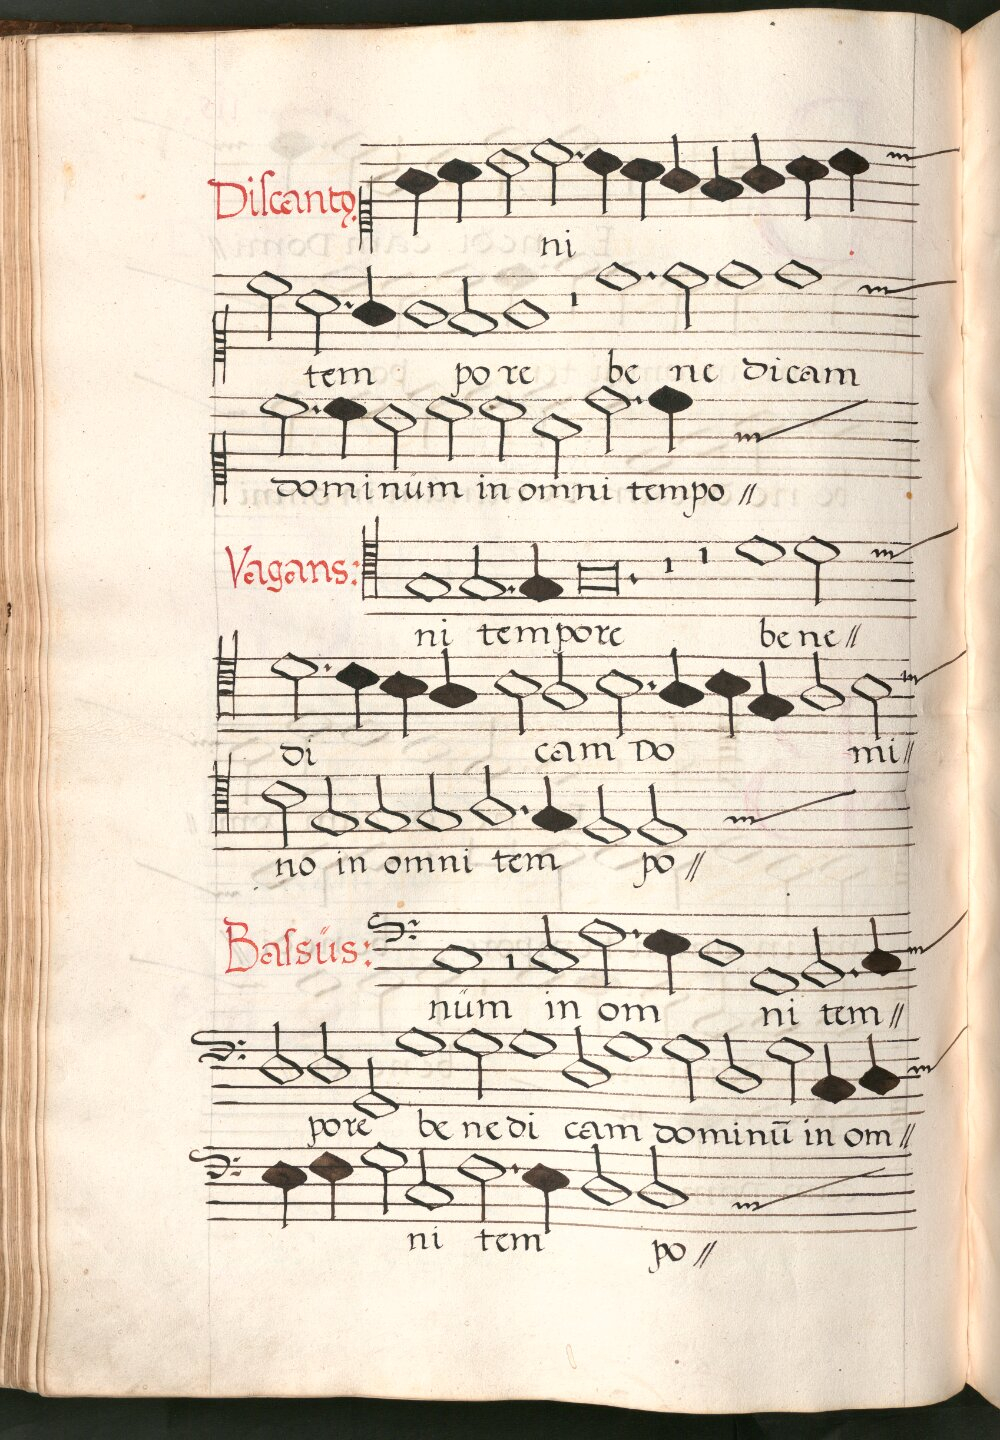 Discantꝰ
ni
tem pore be ne dicam
dominum in omni tempo //
Vagans:
ni tempore be ne //
di cam Do mi //
no in omni tem po //
Bassüs:
nüm in om ni tem //
pore be ne di cam dominū in om //
ni tem po //